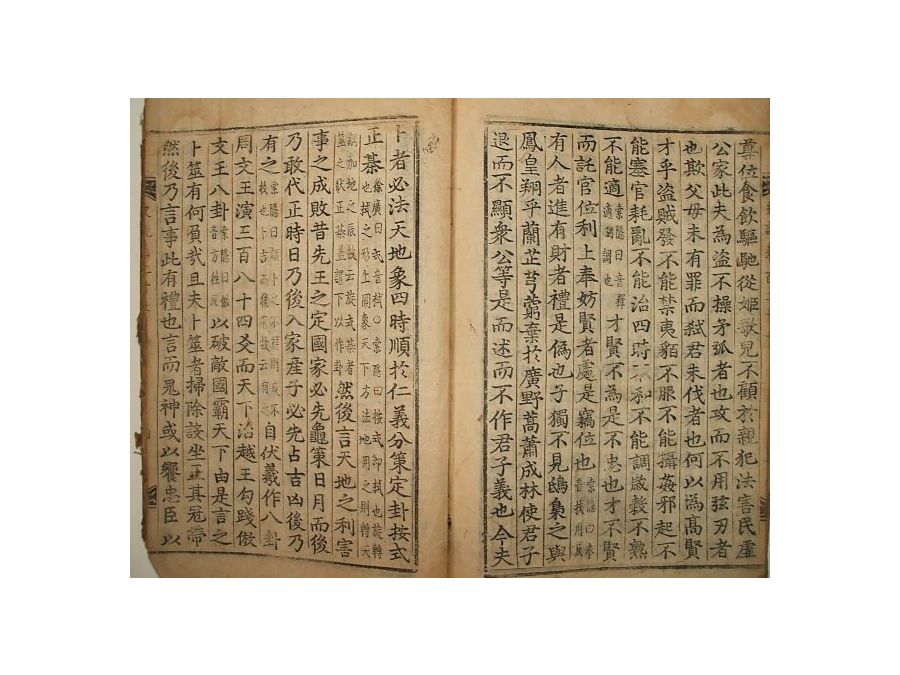 尊位食飲驅馳從姬歌兒不顧於親犯法害民虛
公家此夫為盜不操矛弧者也攻而不用弦刃者
也欺父母未有罪而弒君未伐者也何以為高賢
才乎盜賊發不能禁夷貊不服不能攝姦邪起不
能塞官耗亂不能治四時不和不能調歲穀不熟
不能適索隱曰音釋適調也才賢不為是不忠也才不賢
而託官位利上奉妨賢者處是竊位也索隱曰奉音扶用反
有人者進有財者禮是偽也子獨不見鴟梟之與
鳳皇翔乎蘭芷芎藭棄於廣野蒿蕭成林使君子
退而不顯衆公等是而述而不作君子義也今夫
卜者必法天地象四時順於仁義分策定卦按式
正棊徐廣曰式音栻○索隱曰按式即栻也旋轉也栻之形上圓象天下方法地用之則轉天
綱加地之辰故云旋式棊者筮之狀正棊蓋謂卜以作卦然後言天地之利害
事之成敗昔先王之定國家必先龜策日月而後
乃敢代正時日乃後入家産子必先占吉凶後乃
有之索隱曰謂卜之不祥則或不收也卜吉而後有故云有之自伏羲作八卦
周文王演三百八十四爻而天下治越王勾踐倣
文王八卦索隱曰倣音方往反以破敵國霸天下由是言之
卜筮有何負哉且夫卜筮者掃除設坐正其冠帶
然後乃言事此有禮也言而鬼神或以饗忠臣以